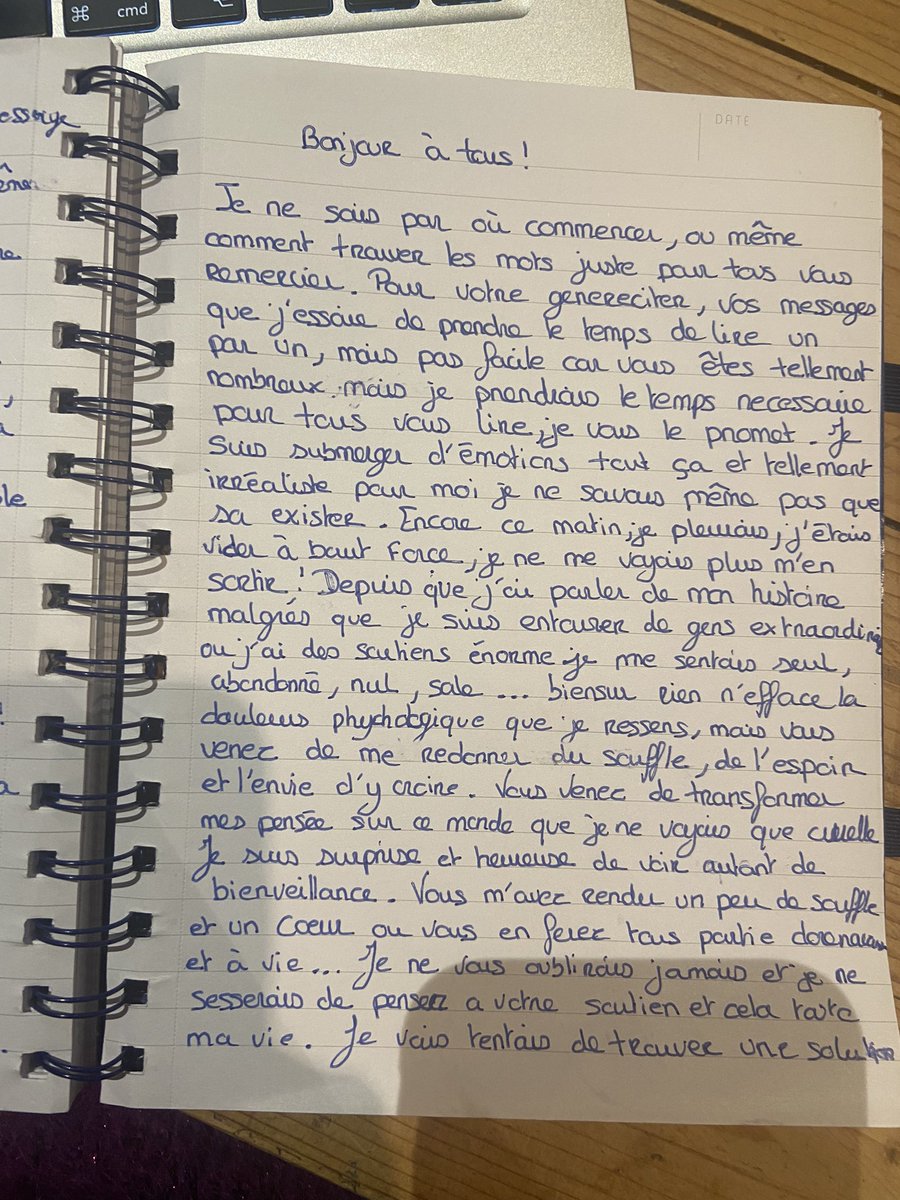 ⌘ cmd
DATE
essage
Bonjour à tous !
Je ne sais par où commencer, ou même
comment trouver les mots juste pour tous vous
Remercier. Pour votre genereciter, vos messages
que j'essaie de prendre le temps de lire un
par un, mais pas facile car vous êtes tellement
nombreux. mais je prendrais le temps necessaire
pour tous vous lire, je vous le promet. Je
suis submerger d'émotions tout ça et tellement
irréaliste pour moi je ne savais même pas que
sa exister. Encore ce matin, je pleurais, j'étais
vider à bout force, je ne me voyais plus m'en
sortir ! Depuis que j'ai parler de mon histoire
malgrés que je suis entourer de gens extraordinj
ou j'ai des soutiens énorme je me sentais seul,
abandonné, nul, sale ... biensur rien n'efface la
douleurs phychologique que je ressens, mais vous
venez de me redonner du souffle, de l'espoir
et l'envie d'y croire. Vous venez de transformer
mes pensée sur ce monde que je ne voyais que cruelle
Je suis surprise et heureuse de voir autant de
bienveillance. Vous m'avez rendu un peu de souffle
et un Coeur ou vous en ferez tous partie dorenavant
et à vie... Je ne vous oublirais jamais et je ne
sesserais de penser a votre soutien et cela toute
ma vie. Je vais tentais de trouver une solution